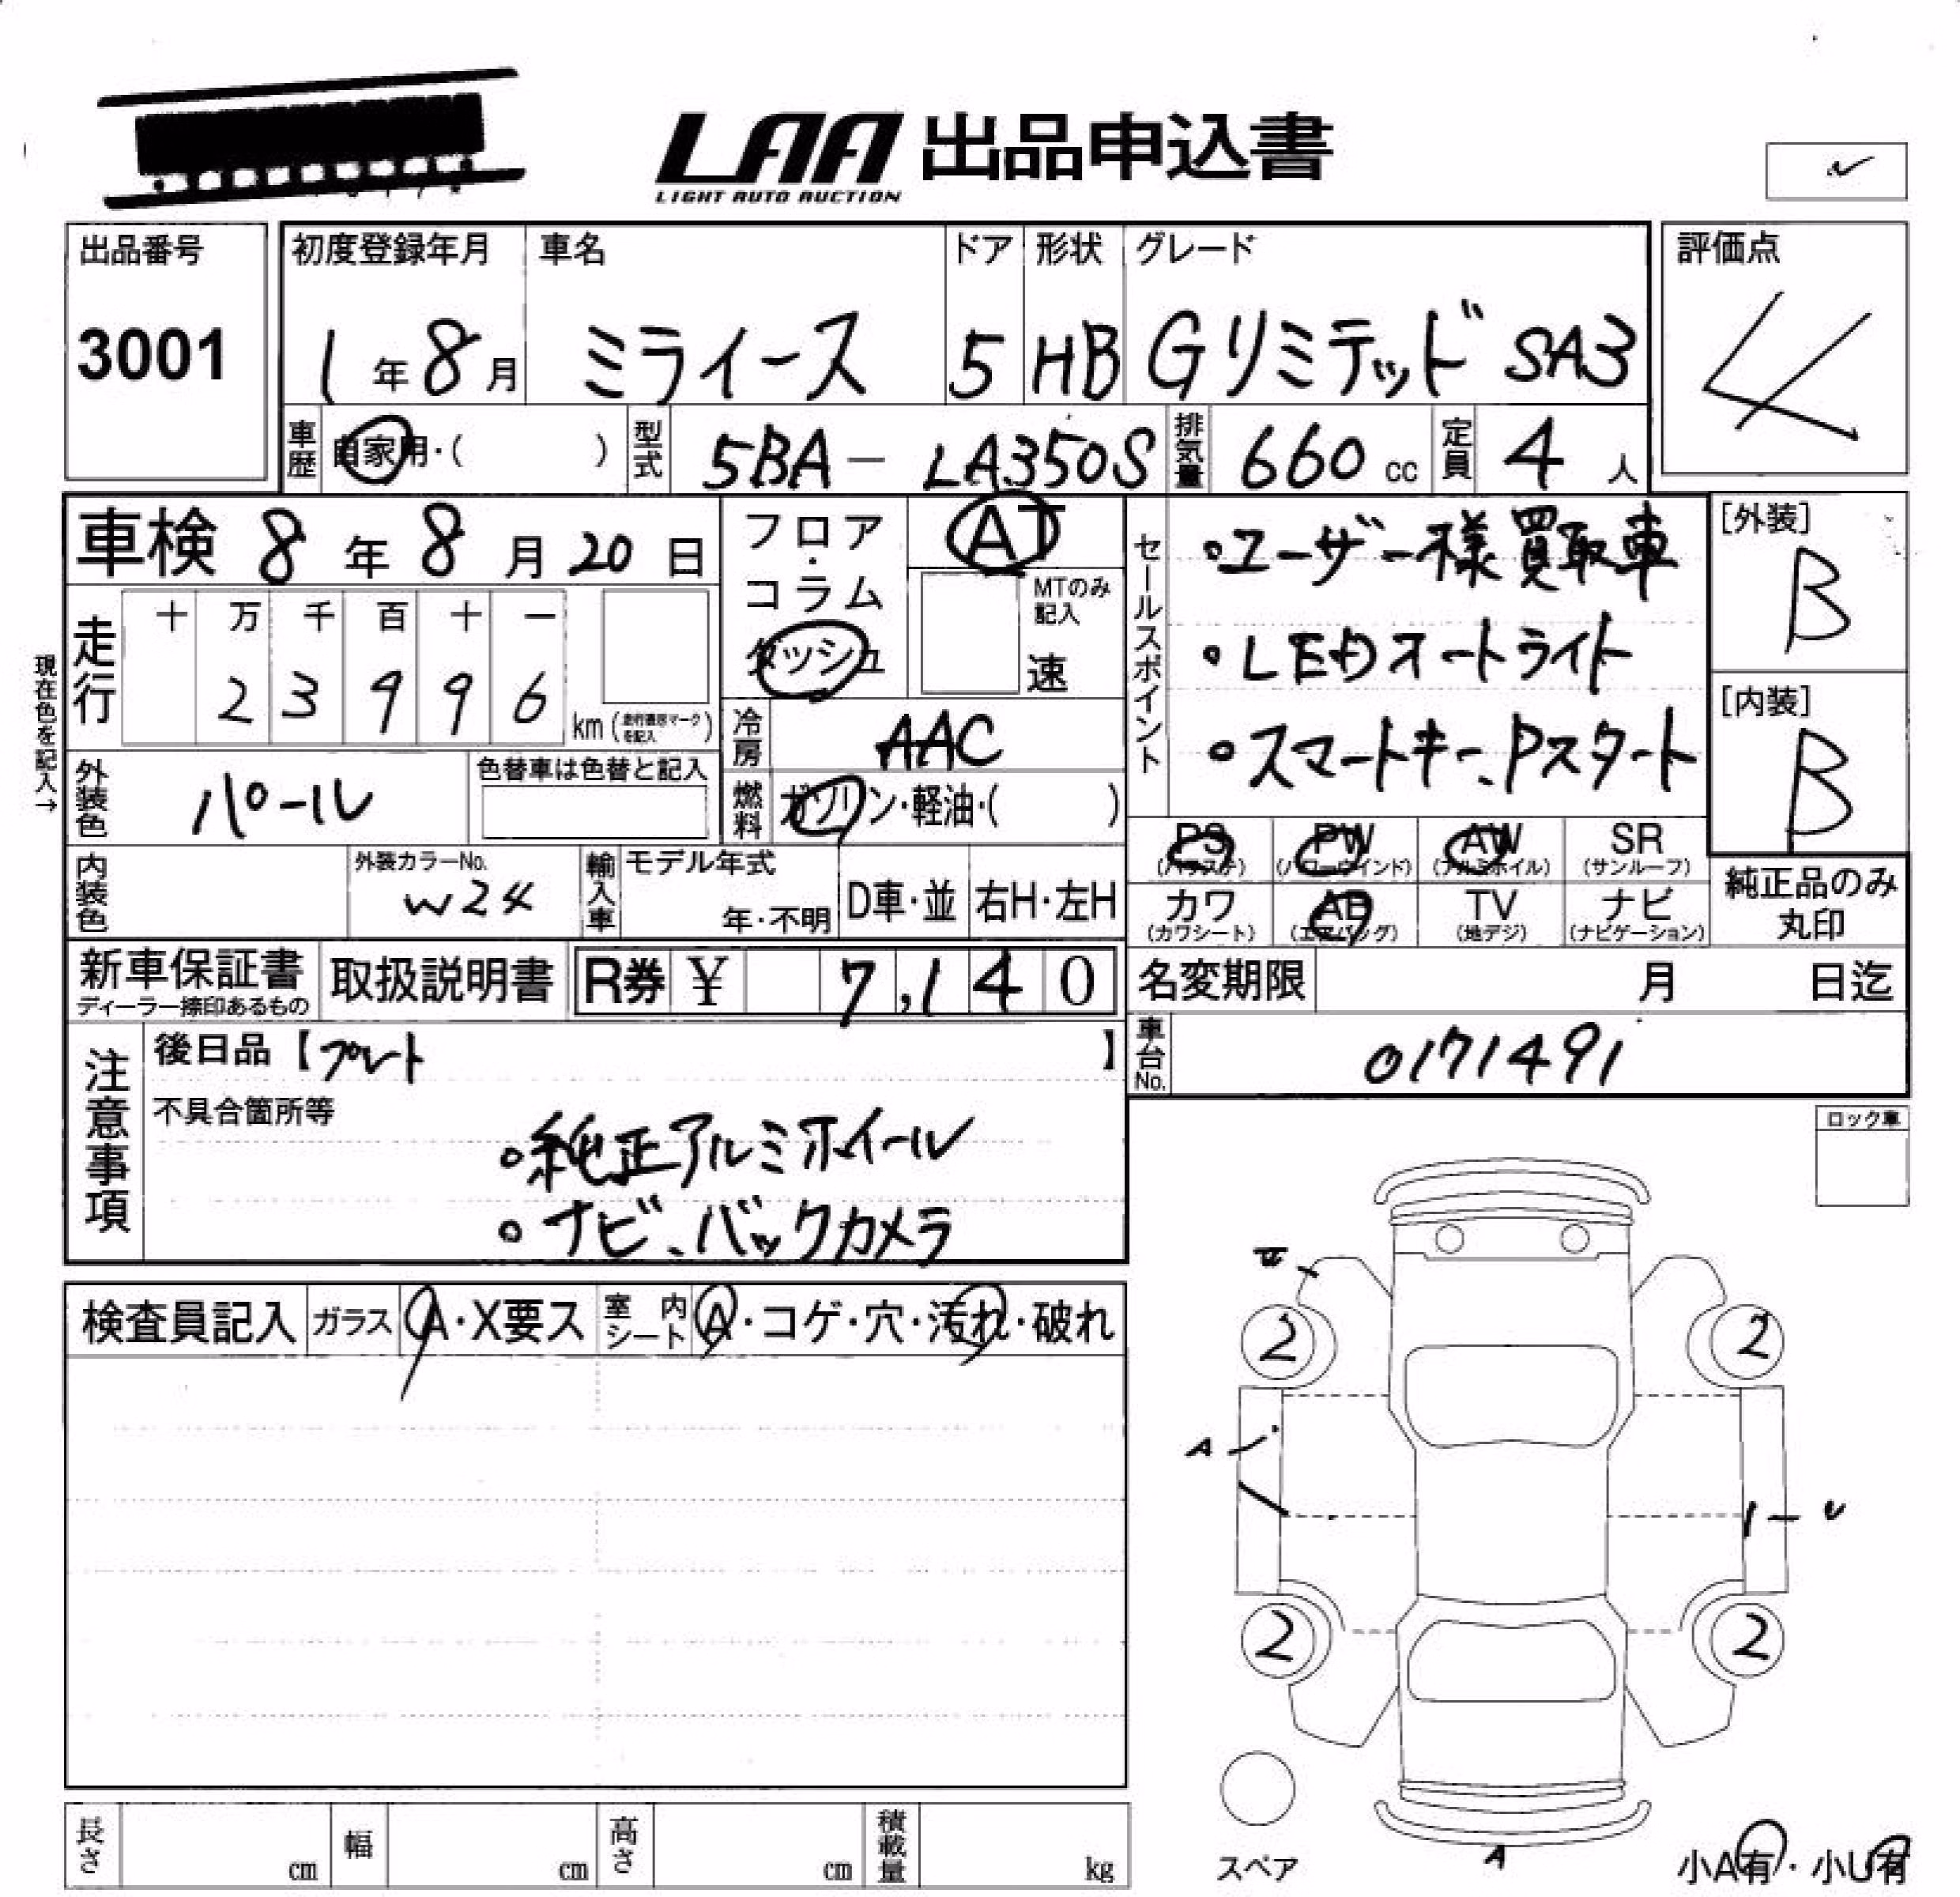 LAA 出品申込書
LIGHT AUTO AUCTION
出品番号
3001
初度登録年月 車名 ドア 形状 グレード
1年8月 ミライース 5 HB Gリミテッド SA3
評価点
4
車歴 自家用・( ) 型式 5BA-LA350S 排気量 660cc 定員 4人
車検 8年8月20日
フロア・コラム ダッシュ
AT
MTのみ記入
速
セールスポイント
・ユーザー様買取車
・LEDオートライト
・スマートキー、Pスタート
[外装]
B
[内装]
B
現在色を記入→
走行
十 万 千 百 十 一
2 3 9 9 6 km (走行表示マークを記入)
冷房 AAC
外装色 パール 色替車は色替と記入
燃料 ガソリン・軽油・( )
PS (パワステ) PW (パワーウインド) AW (アルミホイル) SR (サンルーフ)
カワ (カワシート) AB (エアバッグ) TV (地デジ) ナビ (ナビゲーション)
純正品のみ丸印
内装色 外装カラーNo. W24
輸入車 モデル年式 年・不明 D車・並 右H・左H
新車保証書 ディーラー捺印あるもの 取扱説明書 R券 ¥ 7,140
名変期限 月 日迄
車台No. 0171491
注意事項
後日品【プレート】
不具合箇所等
・純正アルミホイール
・ナビ、バックカメラ
ロック車
検査員記入 ガラス A・X要ス 室内シート A・コゲ・穴・汚れ・破れ
2 2
A
U
2 2
A
スペア
小A有・小U有
長さ cm 幅 cm 高さ cm 積載量 kg